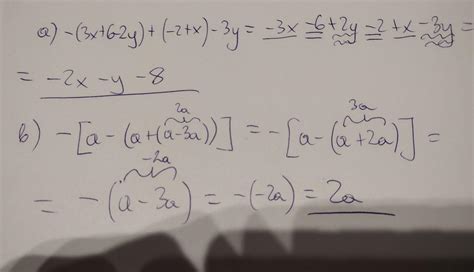 a) -(3x+6-2y)+(-2+x)-3y = -3x -6+2y -2+x -3y =
= -2x - y - 8
2a 3a
b) -[a-(a+(a-3a))] = -[a-(a+2a)] =
-2a
= -(a-3a) = -(-2a) = 2a